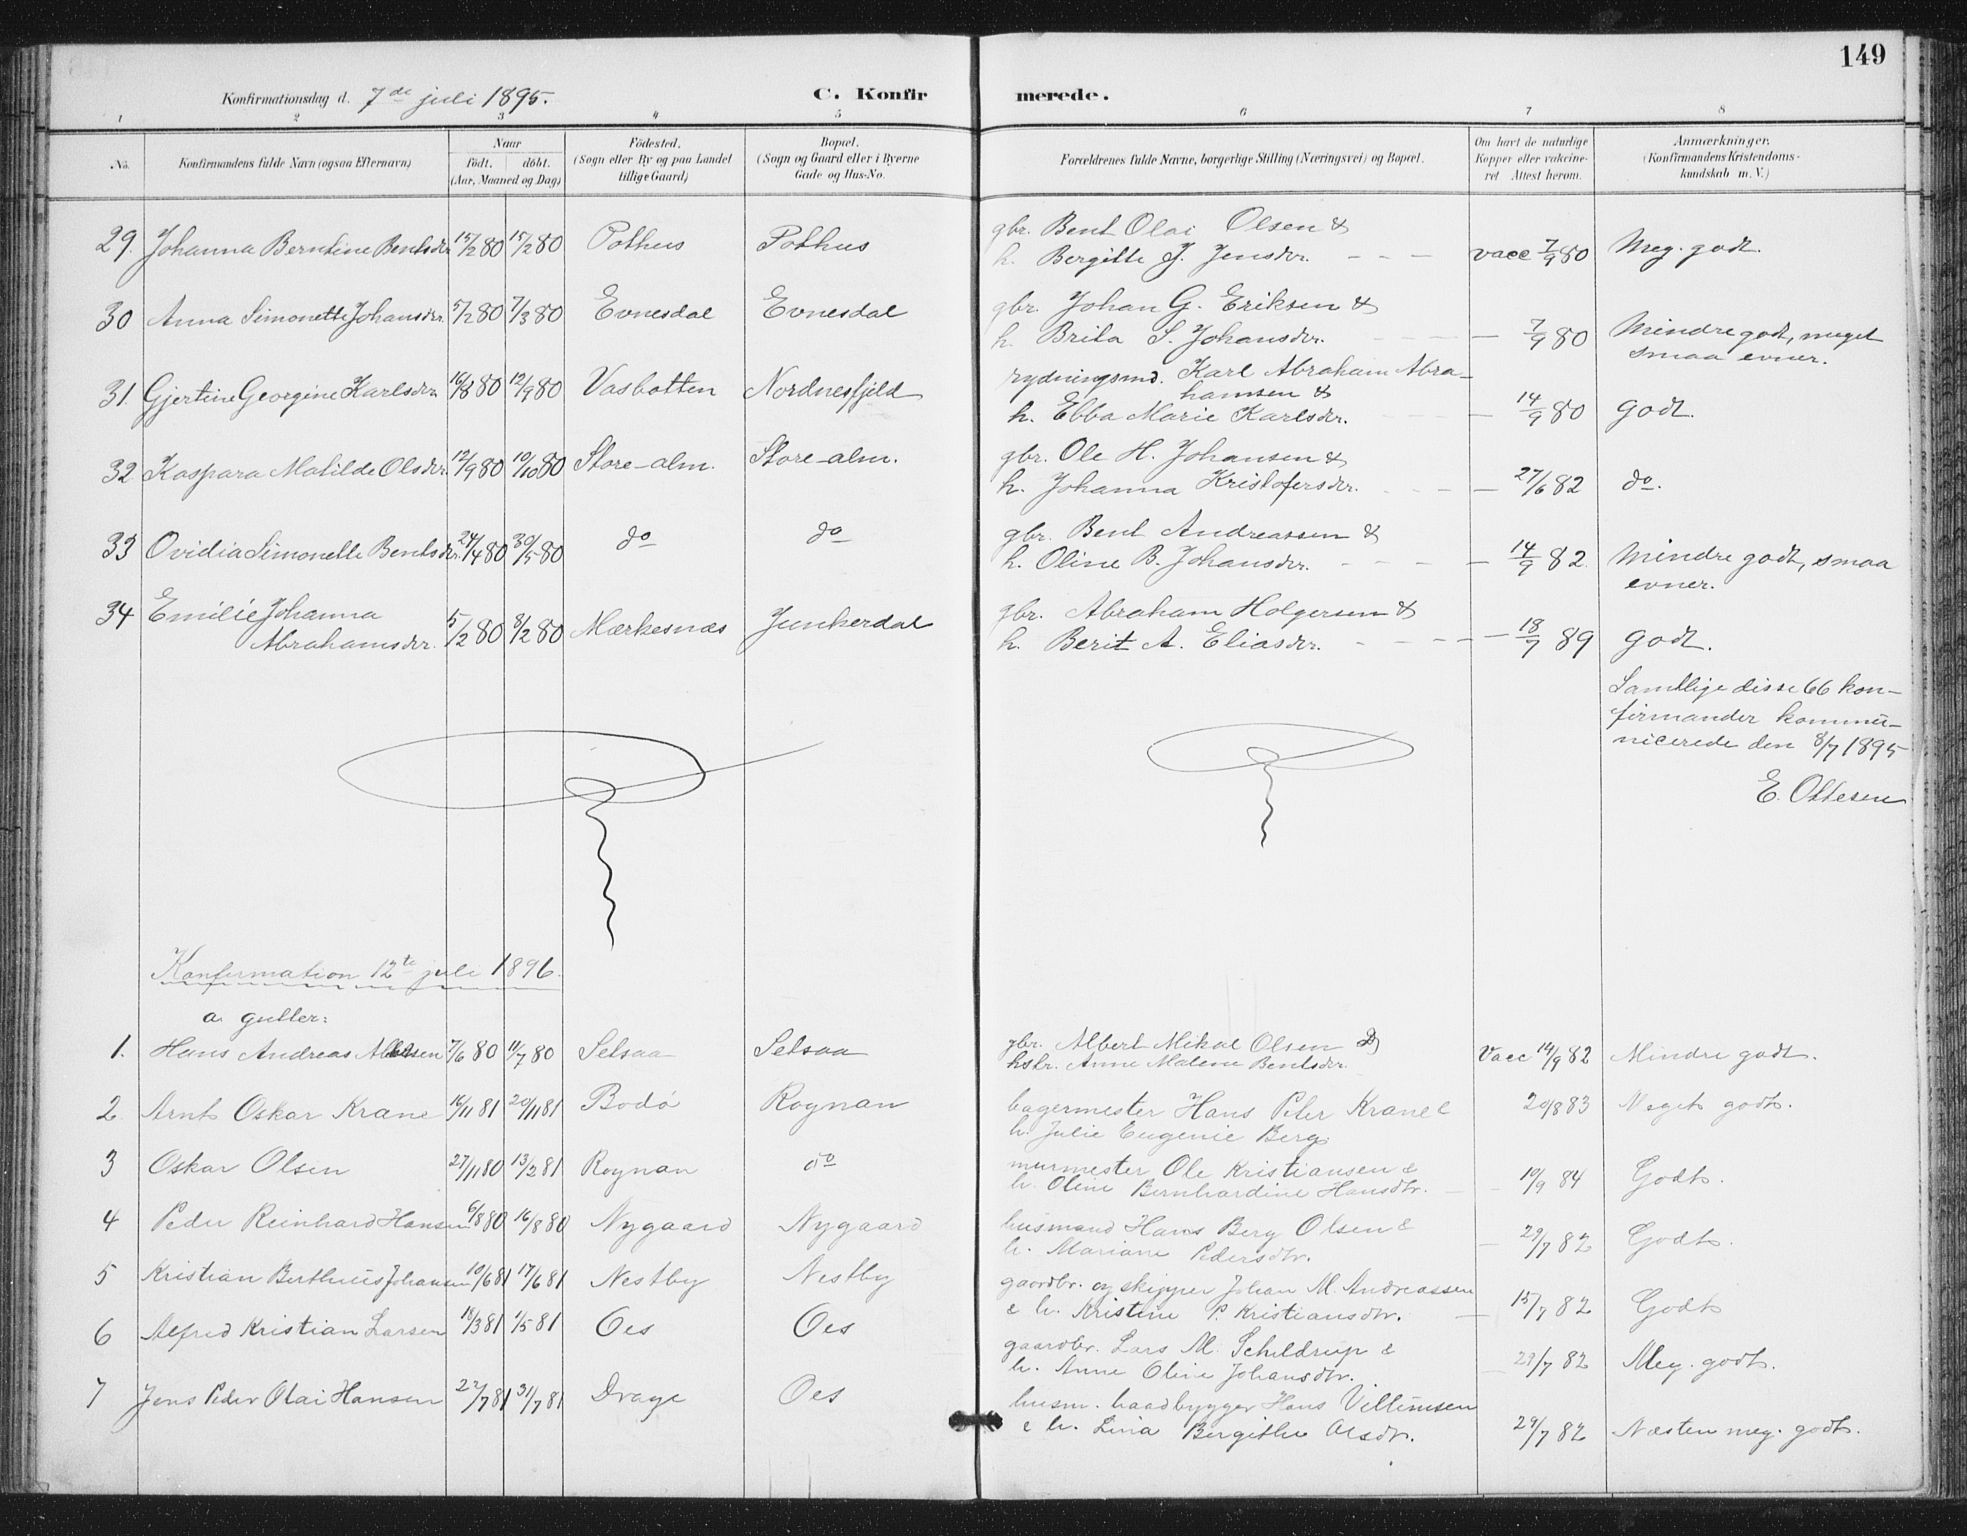 149
Konfirmationsdag d. 7de juli 1895. C. Konfirmerede.
1 2 3 4 5 6 7 8
No. Konfirmandens fulde Navn (ogsaa Efternavn). Naar födt. döbt. (Aar, Maaned og Dag) Födested. (Sogn eller By og paa Landet tillige Gaard) Bopæl. (Sogn og Gaard eller i Byerne Gade og Hus-No. Forældrenes fulde Navne, borgerlige Stilling (Næringsvei) og Bopæl. Om havt de naturlige Kopper eller vakcineret Attest herom. Anmærkninger. (Konfirmandens Kristendomskundskab m. V.)
29. Johanna Berntine Bentsdr. 15/2 80 15/2 80 Pothus Pothus gbr. Bent Olai Olsen &
h. Bergitte J. Jensdr. - - - vacc 7/9 80 Meg. godt.
30 Anna Simonette Johansdr. 5/2 80 7/3 80 Evnesdal Evnesdal gbr. Johan G. Eriksen &
h. Brita S. Johansdr. — 7/9 80 Mindre godt, meget
smaa evner.
31. Gjertine Georgine Karlsdr. 16/8 80 12/9 80 Vasbotten Nordnesfjeld rydningsmd. Karl Abraham Abra-
hamsen &
h. Ebba Marie Karlsdr. — 14/9 80 godt.
32 Kaspara Matilde Olsdr. 12/9 80 10/10 80 Store-alm. Store-alm. gbr. Ole H. Johansen &
h. Johanna Kristofersdr. — 27/6 82 do.
33 Ovidia Simonette Bentsdr. 24/4 80 30/5 80 do do gbr. Bent Andreassen &
h. Oline B. Johansdr. — 14/9 82. Mindre godt, smaa
evner.
34 Emilie Johanna
Abrahamsdr. 5/2 80 8/2 80 Mærkesnæs Junkerdal gbr. Abraham Holgersen &
h. Berit A. Eliasdr. — 18/7 89 godt.
Samtlige disse 66 kon-
firmander kommu-
nicerede den 8/7 1895
E. Ottesen
Konfirmation 12te juli 1896.
a. gutter:
1. Hans Andreas 7/6 80 11/7 80 Setsaa Setsaa gbr. Albert Mikal Olsen &
hstr. Anne Malene Bentsdr. Vacc 14/9 82 Mindre godt.
2. Arnt Oskar Krane 16/11 81 20/11 81 Bodö Rognan bagermester Hans Peter Krane &
h. Julie Eugenie Berg. 20/8 83 Meget godt.
3 Oskar Olsen 27/11 80 13/2 81 Rognan do murmester Ole Kristiansen &
h. Oline Bernhardine Hansdtr. — 10/9 84 Godt.
4 Peder Reinhard Hansen 6/8 80 16/8 80 Nygaard Nygaard husmand Hans Berg Olsen &
h. Mariane Pedersdtr. — 29/7 82 Godt.
5 Kristian Berthius Johansen 10/6 81 17/6 81 Nestby Nestby gaardbr. og skipper Johan M. Andreassen
& h. Kristine P. Kristiansdtr. — 15/7 82 Godt
6 Alfred Kristian Larsen 18/3 81 1/5 81 Oes Oes gaardbr. Lars M. Schildrup &
h. Anne Oline Johansdtr. — 29/7 82 Meg. godt.
7 Jens Peder Olai Hansen 22/7 81 31/7 81 Drage Oes husm. baadbygger Hans Villumsen
& h. Lina Bergithe Olsdtr. 29/7 82 Næsten meg. godt.